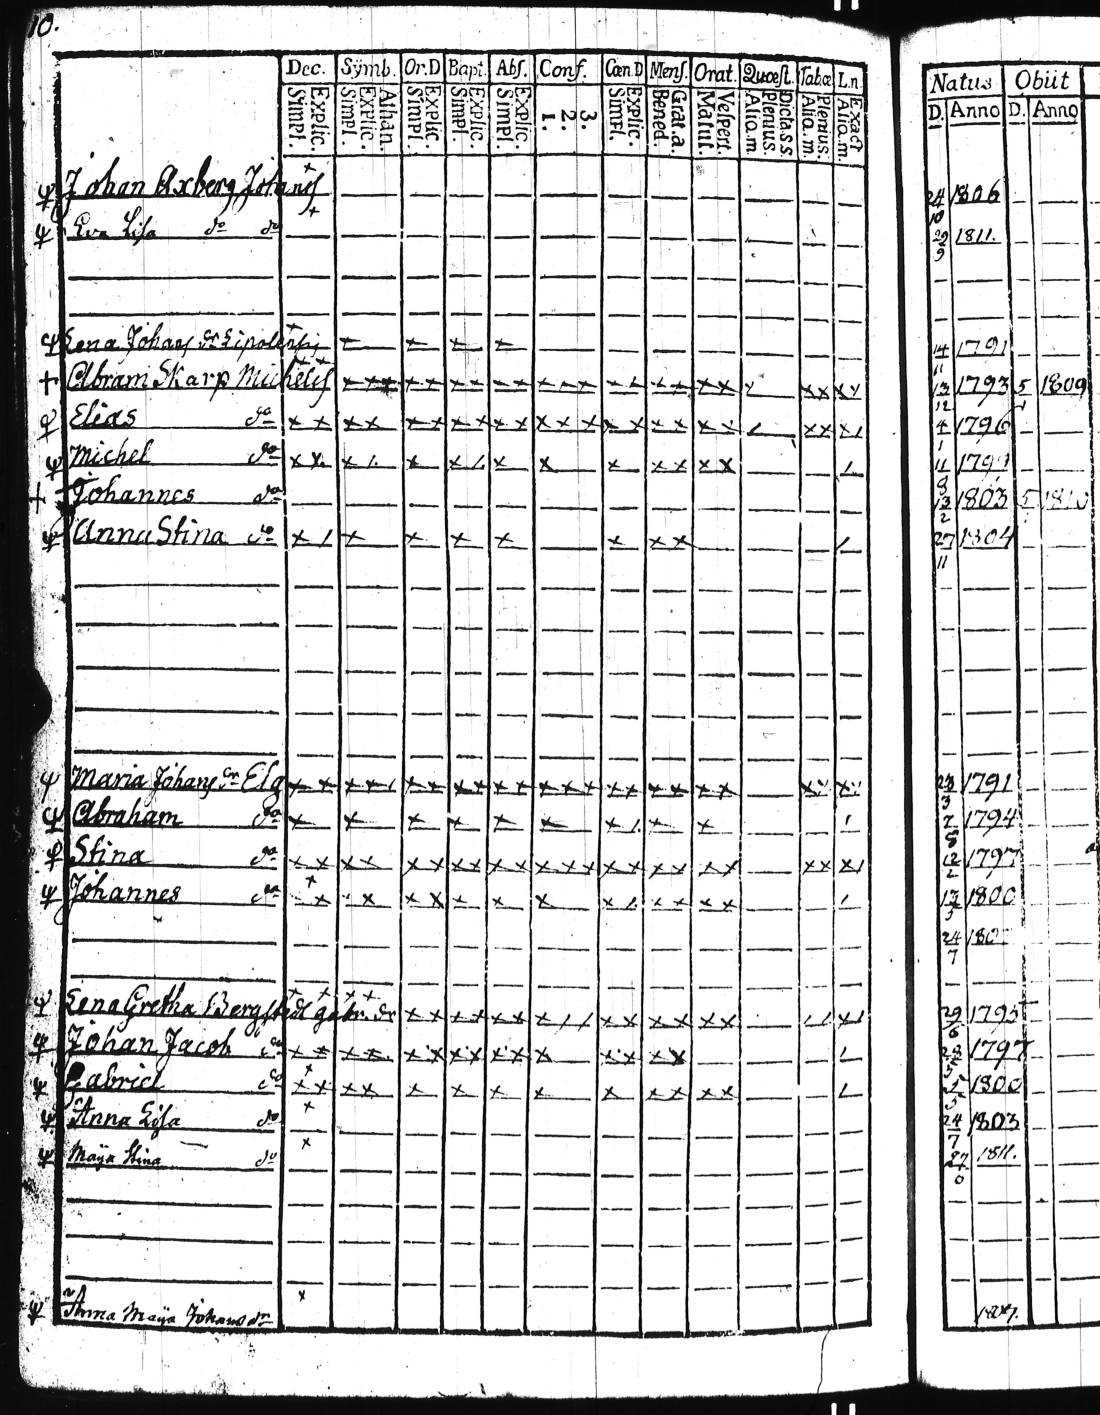 10.
Dec. Symb. Or.D Bapt. Abs. Conf. Cœn.D Mens. Orat. Quœst. Tabæ L.n. Natus Obiit
Explic. Simpl. Athan. Explic. Simpl. Explic. Simpl. Explic. Simpl. Explic. Simpl. 3. 2. 1. Explic. Simpl. Grat.a. Bened. Vespert. Matut. Dicta.s.s. Plenius. Aliq.m. Plenius. Aliq.m. Exact Aliq.m. D. Anno D. Anno
Johan Axberg Johans 24/10 1806
Eva Lisa do do 29/9 1811.
Lena Johans dr Lipolensis 14/11 1791
Abram Skarp Michels 13/12 1793 5 1809
Elias do 4/1 1796
Michel do 11/8 1799
Johannes do 13/2 1803 5 1810
Anna Stina do 27/11 1804
Maria Johans dr Elg 23/3 1791
Abraham do 2/8 1794
Stina do 12/2 1797
Johannes do 13/5 1800
24/7 180
Lena Gretha Bergstedt gabr. dr 29/6 1795
Johan Jacob do 1797
Gabriel do 1800
Anna Lisa do 24/7 1803
Maija Stina do 1811.
Anna Maija Johans dr 1807.